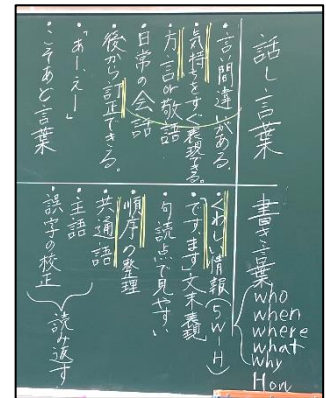 話し言葉
・言い間違いがある。
・気持ちをすぐ表現できる。
・方言or敬語
・日常の会話
・後から訂正できる。
・「あー、えー」
・こそあど言葉
書き言葉
・くわしい情報(5W1H)
who
when
where
what
why
How
・「です、ます」文末表現
・句読点で見やすい
・順序の整理
・共通語
・主語
・誤字の校正
読み返す